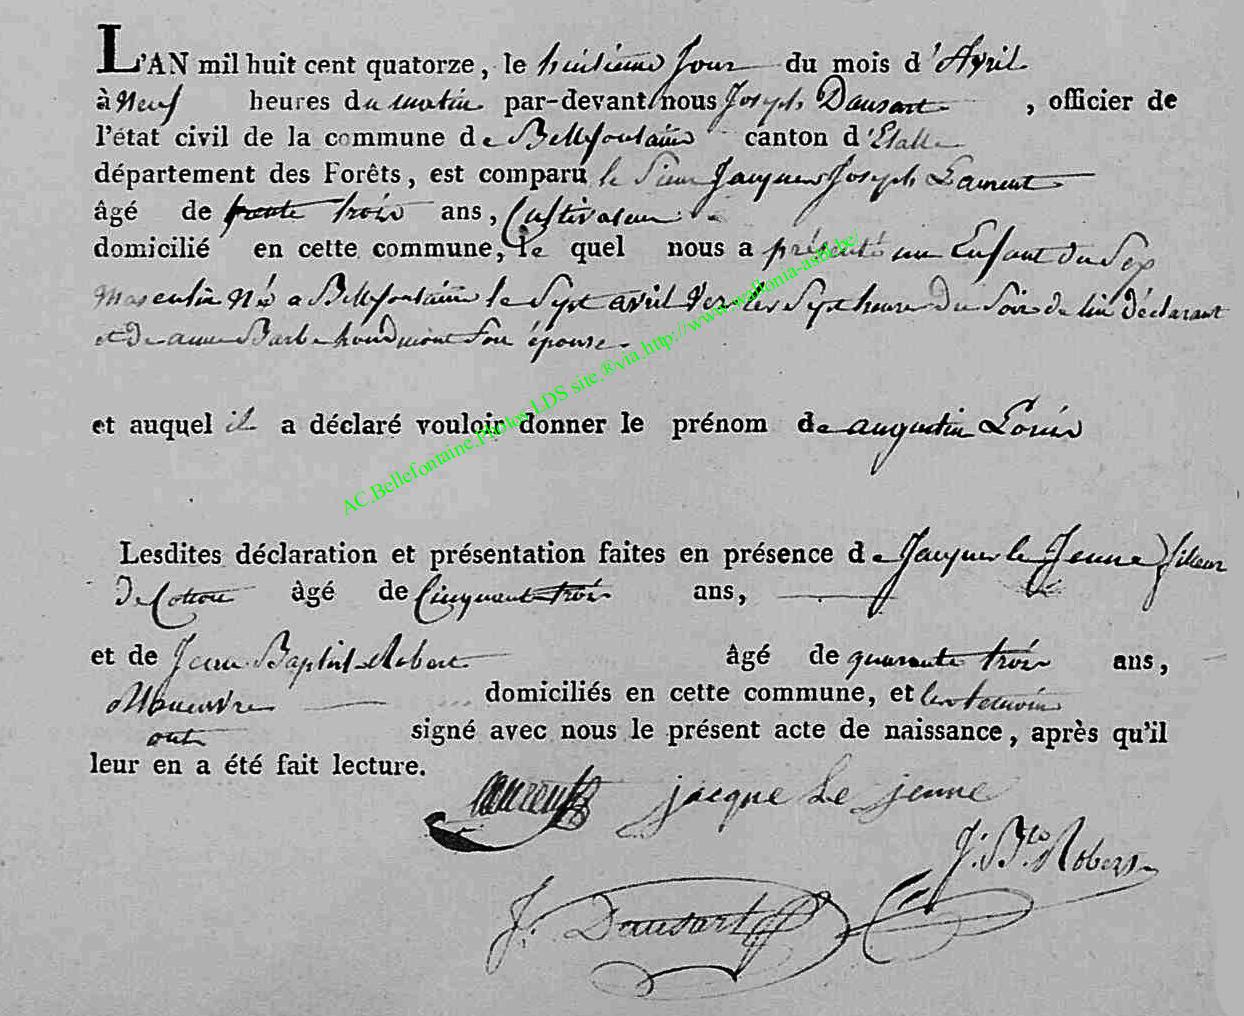 L'AN mil huit cent quatorze, le huitieme Jour du mois d'Avril
à Neuf heures du matin par-devant nous Joseph Dausart, officier de
l'état civil de la commune de Bellefontaine canton d'Etalle
département des Forêts, est comparu le Sieur Jacques Joseph Laurent
âgé de trente trois ans, Cultivateur
domicilié en cette commune, le quel nous a présenté un Enfant du Sex
Masculin Né a Bellefontaine le Sept avril Vers les Sept heure Du Soir de lui déclarant
et De anne Barbe houdmont Son épouse.
et auquel il a déclaré vouloir donner le prénom de augustin Louis
Lesdites déclaration et présentation faites en présence de Jacques le Jeune fileur
De Cotton âgé de Cinquante trois ans,
et de Jean Baptist Robert âgé de quarante trois ans,
Maneuvre domiciliés en cette commune, et les temoins
ont signé avec nous le présent acte de naissance, après qu'il
leur en a été fait lecture.
Laurent jacque Le jeune
J. B.te Robert
J. Dausart
AC.Bellefontaine.Photos LDS site.®via http://www.wallonia-asbl.be/